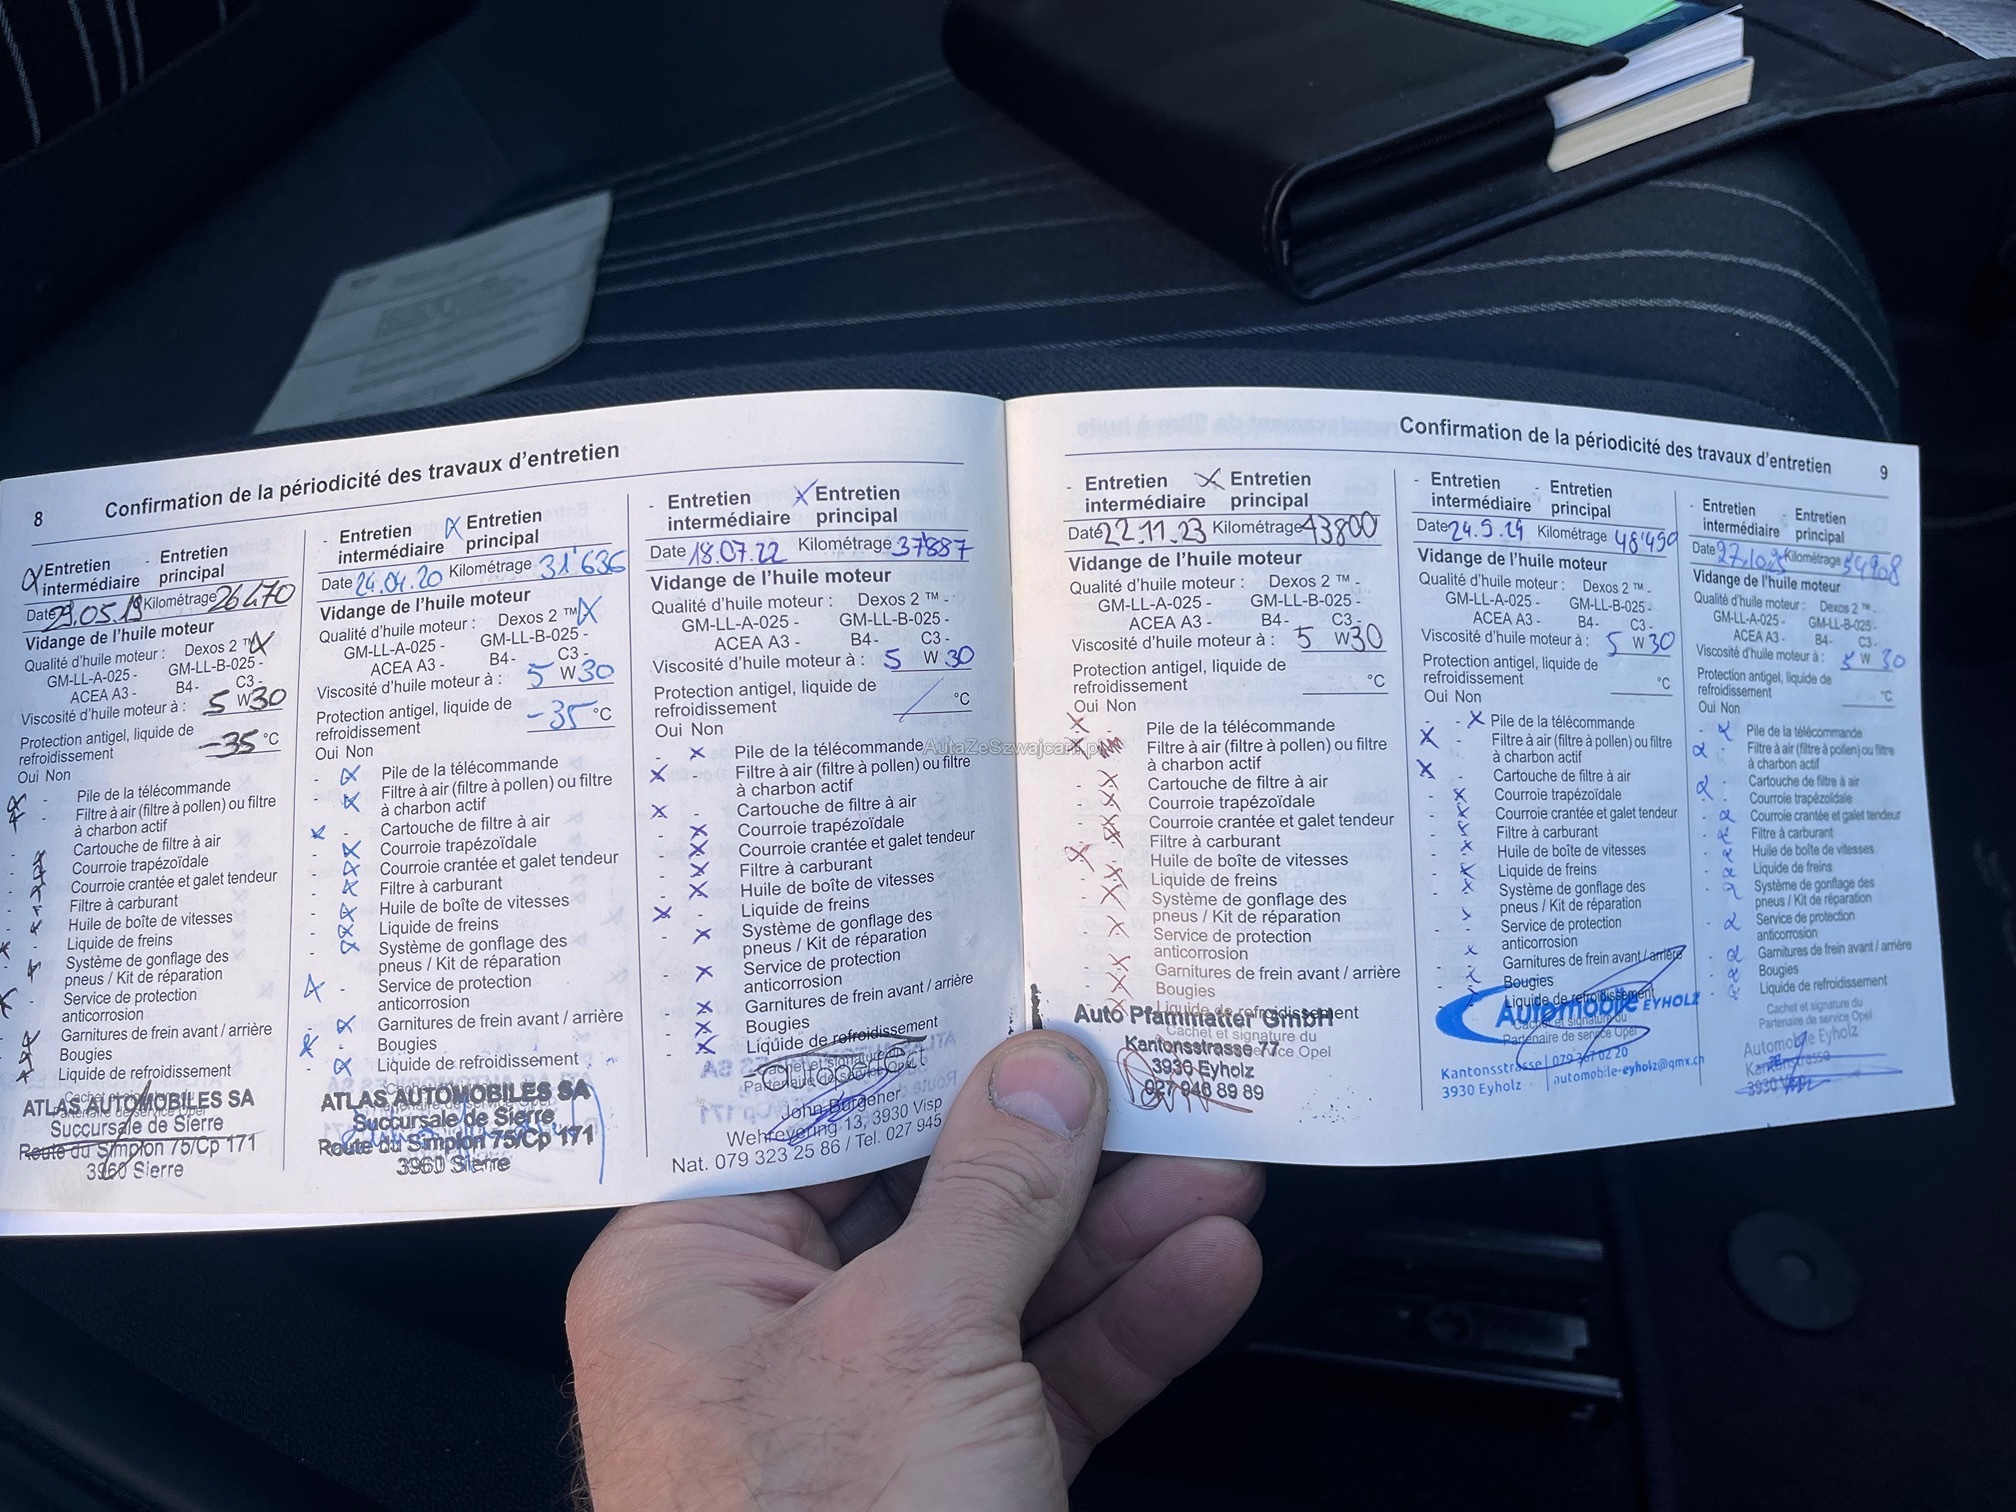 8 Confirmation de la périodicité des travaux d'entretien
Entretien intermédiaire - Entretien principal
Date 29.05.19 Kilométrage 26470
Vidange de l'huile moteur
Qualité d'huile moteur : Dexos 2 ™
GM-LL-A-025 - GM-LL-B-025 -
ACEA A3 - B4- C3 -
Viscosité d'huile moteur à : 5 W30
Protection antigel, liquide de
refroidissement -35 °C
Oui Non
Pile de la télécommande
Filtre à air (filtre à pollen) ou filtre
à charbon actif
Cartouche de filtre à air
Courroie trapézoïdale
Courroie crantée et galet tendeur
Filtre à carburant
Huile de boîte de vitesses
Liquide de freins
Système de gonflage des
pneus / Kit de réparation
Service de protection
anticorrosion
Garnitures de frein avant / arrière
Bougies
Liquide de refroidissement
Cachet et signature du
Partenaire de service Opel
ATLAS AUTOMOBILES SA
Succursale de Sierre
Route du Simplon 75/Cp 171
3960 Sierre
- Entretien intermédiaire X Entretien principal
Date 24.04.20 Kilométrage 31'636
Vidange de l'huile moteur
Qualité d'huile moteur : Dexos 2 ™ X
GM-LL-A-025 - GM-LL-B-025 -
ACEA A3 - B4- C3 -
Viscosité d'huile moteur à : 5 W30
Protection antigel, liquide de
refroidissement -35 °C
Oui Non
Pile de la télécommande
Filtre à air (filtre à pollen) ou filtre
à charbon actif
Cartouche de filtre à air
Courroie trapézoïdale
Courroie crantée et galet tendeur
Filtre à carburant
Huile de boîte de vitesses
Liquide de freins
Système de gonflage des
pneus / Kit de réparation
Service de protection
anticorrosion
Garnitures de frein avant / arrière
Bougies
Liquide de refroidissement
ATLAS AUTOMOBILES SA
Succursale de Sierre
Route du Simplon 75/Cp 171
3960 Sierre
- Entretien intermédiaire X Entretien principal
Date 18.07.22 Kilométrage 37'887
Vidange de l'huile moteur
Qualité d'huile moteur : Dexos 2 ™ -
GM-LL-A-025 - GM-LL-B-025 -
ACEA A3 - B4- C3 -
Viscosité d'huile moteur à : 5 W 30
Protection antigel, liquide de
refroidissement / °C
Oui Non
- X Pile de la télécommande
X - Filtre à air (filtre à pollen) ou filtre
à charbon actif
X - Cartouche de filtre à air
- X Courroie trapézoïdale
- X Courroie crantée et galet tendeur
- X Filtre à carburant
- X Huile de boîte de vitesses
X - Liquide de freins
- X Système de gonflage des
pneus / Kit de réparation
- X Service de protection
anticorrosion
- X Garnitures de frein avant / arrière
- X Bougies
- X Liquide de refroidissement
Cachet et signature du
Partenaire de service Opel
John Burgener
Wehreyering 13, 3930 Visp
Nat. 079 323 25 86 / Tel. 027 945
AutaZeSzwajcarii.pl
Confirmation de la périodicité des travaux d'entretien 9
- Entretien intermédiaire X Entretien principal
Date 22.11.23 Kilométrage 43800
Vidange de l'huile moteur
Qualité d'huile moteur : Dexos 2 ™ -
GM-LL-A-025 - GM-LL-B-025 -
ACEA A3 - B4- C3 -
Viscosité d'huile moteur à : 5 W30
Protection antigel, liquide de
refroidissement °C
Oui Non
Pile de la télécommande
Filtre à air (filtre à pollen) ou filtre
à charbon actif
Cartouche de filtre à air
Courroie trapézoïdale
Courroie crantée et galet tendeur
Filtre à carburant
Huile de boîte de vitesses
Liquide de freins
Système de gonflage des
pneus / Kit de réparation
Service de protection
anticorrosion
Garnitures de frein avant / arrière
Bougies
Liquide de refroidissement
Cachet et signature du
Auto Pfammatter GmbH
Kantonsstrasse 77
3930 Eyholz
027 946 89 89
- Entretien intermédiaire - Entretien principal
Date 24.9.24 Kilométrage 48'490
Vidange de l'huile moteur
Qualité d'huile moteur : Dexos 2 ™ -
GM-LL-A-025 - GM-LL-B-025 -
ACEA A3 - B4- C3 -
Viscosité d'huile moteur à : 5 W 30
Protection antigel, liquide de
refroidissement °C
Oui Non
- X Pile de la télécommande
X - Filtre à air (filtre à pollen) ou filtre
à charbon actif
X - Cartouche de filtre à air
- X Courroie trapézoïdale
- X Courroie crantée et galet tendeur
- X Filtre à carburant
- X Huile de boîte de vitesses
- X Liquide de freins
- X Système de gonflage des
pneus / Kit de réparation
- X Service de protection
anticorrosion
- X Garnitures de frein avant / arrière
- X Bougies
- X Liquide de refroidissement
Cachet et signature du
Partenaire de service Opel
Automobile EYHOLZ
Kantonsstrasse | 079 367 02 20
3930 Eyholz | automobile-eyholz@gmx.ch
- Entretien intermédiaire - Entretien principal
Date Kilométrage 54908
Vidange de l'huile moteur
Qualité d'huile moteur : Dexos 2 ™ -
GM-LL-A-025 - GM-LL-B-025 -
ACEA A3 - B4- C3 -
Viscosité d'huile moteur à : 5 W 30
Protection antigel, liquide de
refroidissement °C
Oui Non
Pile de la télécommande
Filtre à air (filtre à pollen) ou filtre
à charbon actif
Cartouche de filtre à air
Courroie trapézoïdale
Courroie crantée et galet tendeur
Filtre à carburant
Huile de boîte de vitesses
Liquide de freins
Système de gonflage des
pneus / Kit de réparation
Service de protection
anticorrosion
Garnitures de frein avant / arrière
Bougies
Liquide de refroidissement
Cachet et signature du
Partenaire de service Opel
Automobile Eyholz
Kantonsstrasse
3930